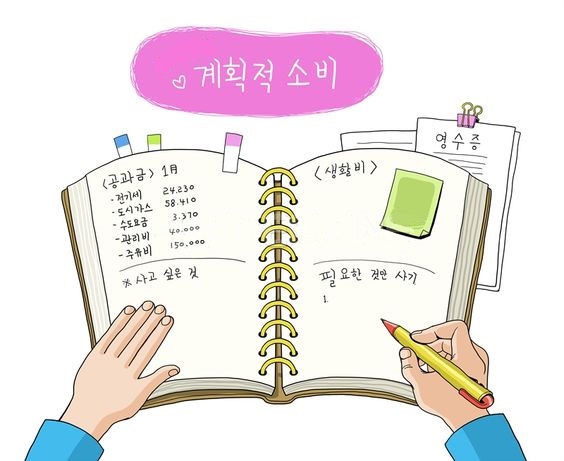 ♡ 계획적 소비
영수증
<공과금> 1月
- 전기세 24.230
- 도시가스 58.410
- 수도요금 3.370
- 관리비 40.000
- 주유비 150.000
※ 사고 싶은 것
<생활비>
필요한 것만 사기
1.